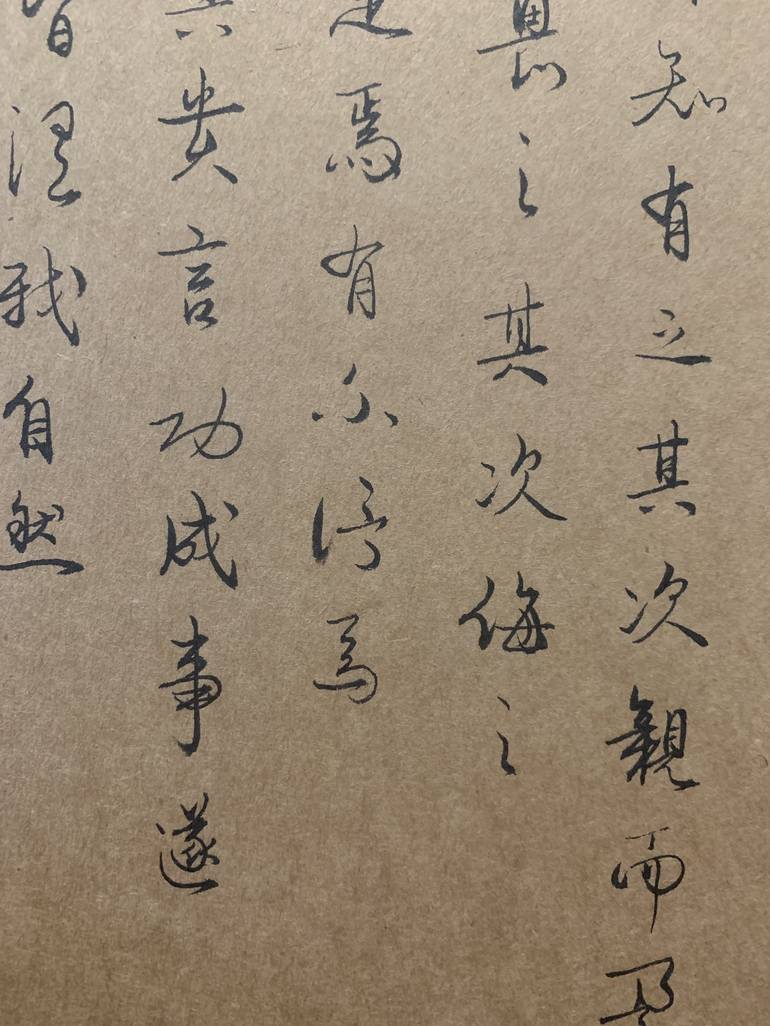 知有之其次親而
畏之其次侮之
足焉有不信焉
其貴言功成事遂
皆謂我自然